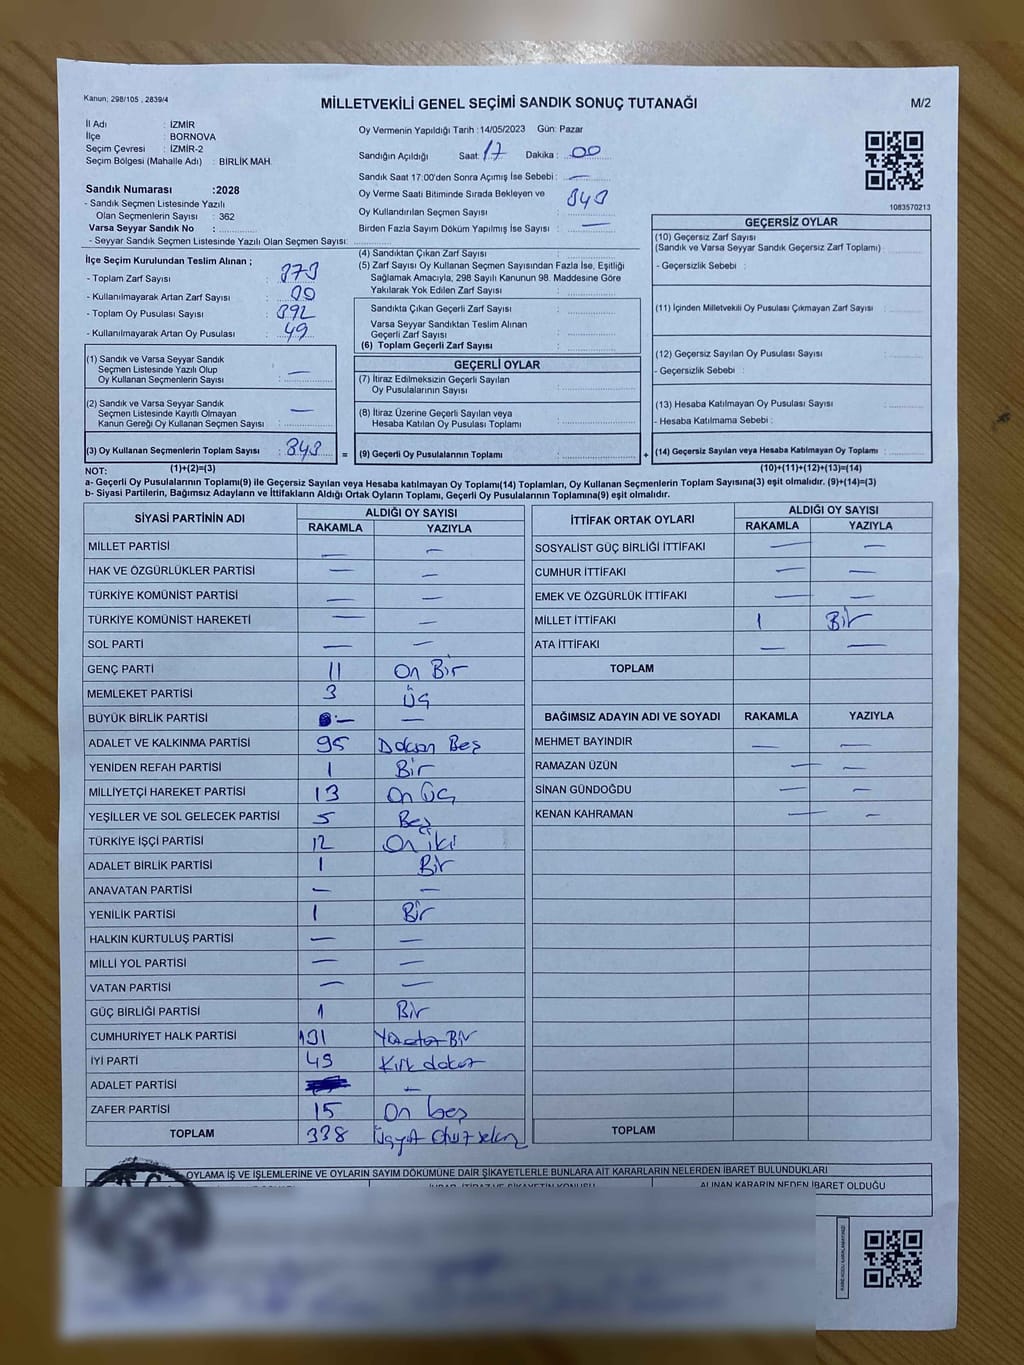 Kanun; 298/105 , 2839/4
MİLLETVEKİLİ GENEL SEÇİMİ SANDIK SONUÇ TUTANAĞI
M/2
İl Adı : İZMİR
İlçe : BORNOVA
Seçim Çevresi : İZMİR-2
Seçim Bölgesi (Mahalle Adı) : BİRLİK MAH.
Sandık Numarası :2028
- Sandık Seçmen Listesinde Yazılı
Olan Seçmenlerin Sayısı : 362
Varsa Seyyar Sandık No :
- Seyyar Sandık Seçmen Listesinde Yazılı Olan Seçmen Sayısı:
Oy Vermenin Yapıldığı Tarih :14/05/2023 Gün: Pazar
Sandığın Açıldığı Saat: 17 Dakika : 00
Sandık Saat 17:00'den Sonra Açımış İse Sebebi : —
Oy Verme Saati Bitiminde Sırada Bekleyen ve
Oy Kullandırılan Seçmen Sayısı :
Birden Fazla Sayım Döküm Yapılmış İse Sayısı : —
1083570213
İlçe Seçim Kurulundan Teslim Alınan ;
- Toplam Zarf Sayısı :
- Kullanılmayarak Artan Zarf Sayısı :
- Toplam Oy Pusulası :
- Kullanılmayarak Artan Oy Pusulası : 49
(1) Sandık ve Varsa Seyyar Sandık
Seçmen Listesinde Yazılı Olup
Oy Kullanan Seçmenlerin Sayısı : —
(2) Sandık ve Varsa Seyyar Sandık
Seçmen Listesinde Kayıtlı Olmayan
Kanun Gereği Oy Kullanan Seçmen Sayısı : —
(3) Oy Kullanan Seçmenlerin Toplam Sayısı : =
(4) Sandıktan Çıkan Zarf Sayısı :
(5) Zarf Sayısı Oy Kullanan Seçmen Sayısından Fazla İse, Eşitliği
Sağlamak Amacıyla, 298 Sayılı Kanunun 98. Maddesine Göre
Yakılarak Yok Edilen Zarf Sayısı :
Sandıkta Çıkan Geçerli Zarf Sayısı :
Varsa Seyyar Sandıktan Teslim Alınan
Geçerli Zarf Sayısı :
(6) Toplam Geçerli Zarf Sayısı :
GEÇERLİ OYLAR
(7) İtiraz Edilmeksizin Geçerli Sayılan
Oy Pusulalarının Sayısı :
(8) İtiraz Üzerine Geçerli Sayılan veya
Hesaba Katılan Oy Pusulası Toplamı :
(9) Geçerli Oy Pusulalarının Toplamı : +
GEÇERSİZ OYLAR
(10) Geçersiz Zarf Sayısı
(Sandık ve Varsa Seyyar Sandık Geçersiz Zarf Toplamı) :
- Geçersizlik Sebebi :
(11) İçinden Milletvekili Oy Pusulası Çıkmayan Zarf Sayısı :
(12) Geçersiz Sayılan Oy Pusulası Sayısı :
- Geçersizlik Sebebi :
(13) Hesaba Katılmayan Oy Pusulası Sayısı :
- Hesaba Katılmama Sebebi :
(14) Geçersiz Sayılan veya Hesaba Katılmayan Oy Toplamı :
NOT: (1)+(2)=(3) (10)+(11)+(12)+(13)=(14)
a- Geçerli Oy Pusulalarının Toplamı(9) ile Geçersiz Sayılan veya Hesaba katılmayan Oy Toplamı(14) Toplamları, Oy Kullanan Seçmenlerin Toplam Sayısına(3) eşit olmalıdır. (9)+(14)=(3)
b- Siyasi Partilerin, Bağımsız Adayların ve İttifakların Aldığı Ortak Oyların Toplamı, Geçerli Oy Pusulalarının Toplamına(9) eşit olmalıdır.
SİYASİ PARTİNİN ADI ALDIĞI OY SAYISI
RAKAMLA YAZIYLA
MİLLET PARTİSİ — —
HAK VE ÖZGÜRLÜKLER PARTİSİ — —
TÜRKİYE KOMÜNİST PARTİSİ — —
TÜRKİYE KOMÜNİST HAREKETİ — —
SOL PARTİ — —
GENÇ PARTİ 11 On Bir
MEMLEKET PARTİSİ 3 üç
BÜYÜK BİRLİK PARTİSİ — —
ADALET VE KALKINMA PARTİSİ 95 Doksan Beş
YENİDEN REFAH PARTİSİ 1 Bir
MİLLİYETÇİ HAREKET PARTİSİ 13 On üç
YEŞİLLER VE SOL GELECEK PARTİSİ 5 Beş
TÜRKİYE İŞÇİ PARTİSİ 12 On iki
ADALET BİRLİK PARTİSİ 1 Bir
ANAVATAN PARTİSİ — —
YENİLİK PARTİSİ 1 Bir
HALKIN KURTULUŞ PARTİSİ — —
MİLLİ YOL PARTİSİ — —
VATAN PARTİSİ — —
GÜÇ BİRLİĞİ PARTİSİ 1 Bir
CUMHURİYET HALK PARTİSİ 131 Bir
İYİ PARTİ 49 Kırk dokuz
ADALET PARTİSİ —
ZAFER PARTİSİ 15 On beş
TOPLAM 338 üçyüz otuz sekiz
İTTİFAK ORTAK OYLARI ALDIĞI OY SAYISI
RAKAMLA YAZIYLA
SOSYALİST GÜÇ BİRLİĞİ İTTİFAKI — —
CUMHUR İTTİFAKI — —
EMEK VE ÖZGÜRLÜK İTTİFAKI — —
MİLLET İTTİFAKI 1 Bir
ATA İTTİFAKI — —
TOPLAM
BAĞIMSIZ ADAYIN ADI VE SOYADI RAKAMLA YAZIYLA
MEHMET BAYINDIR — —
RAMAZAN ÜZÜN — —
SİNAN GÜNDOĞDU — —
KENAN KAHRAMAN — —
TOPLAM
OYLAMA İŞ VE İŞLEMLERİNE VE OYLARIN SAYIM DÖKÜMÜNE DAİR ŞİKAYETLERLE BUNLARA AİT KARARLARIN NELERDEN İBARET BULUNDUKLARI
ALINAN KARARIN NEDEN İBARET OLDUĞU